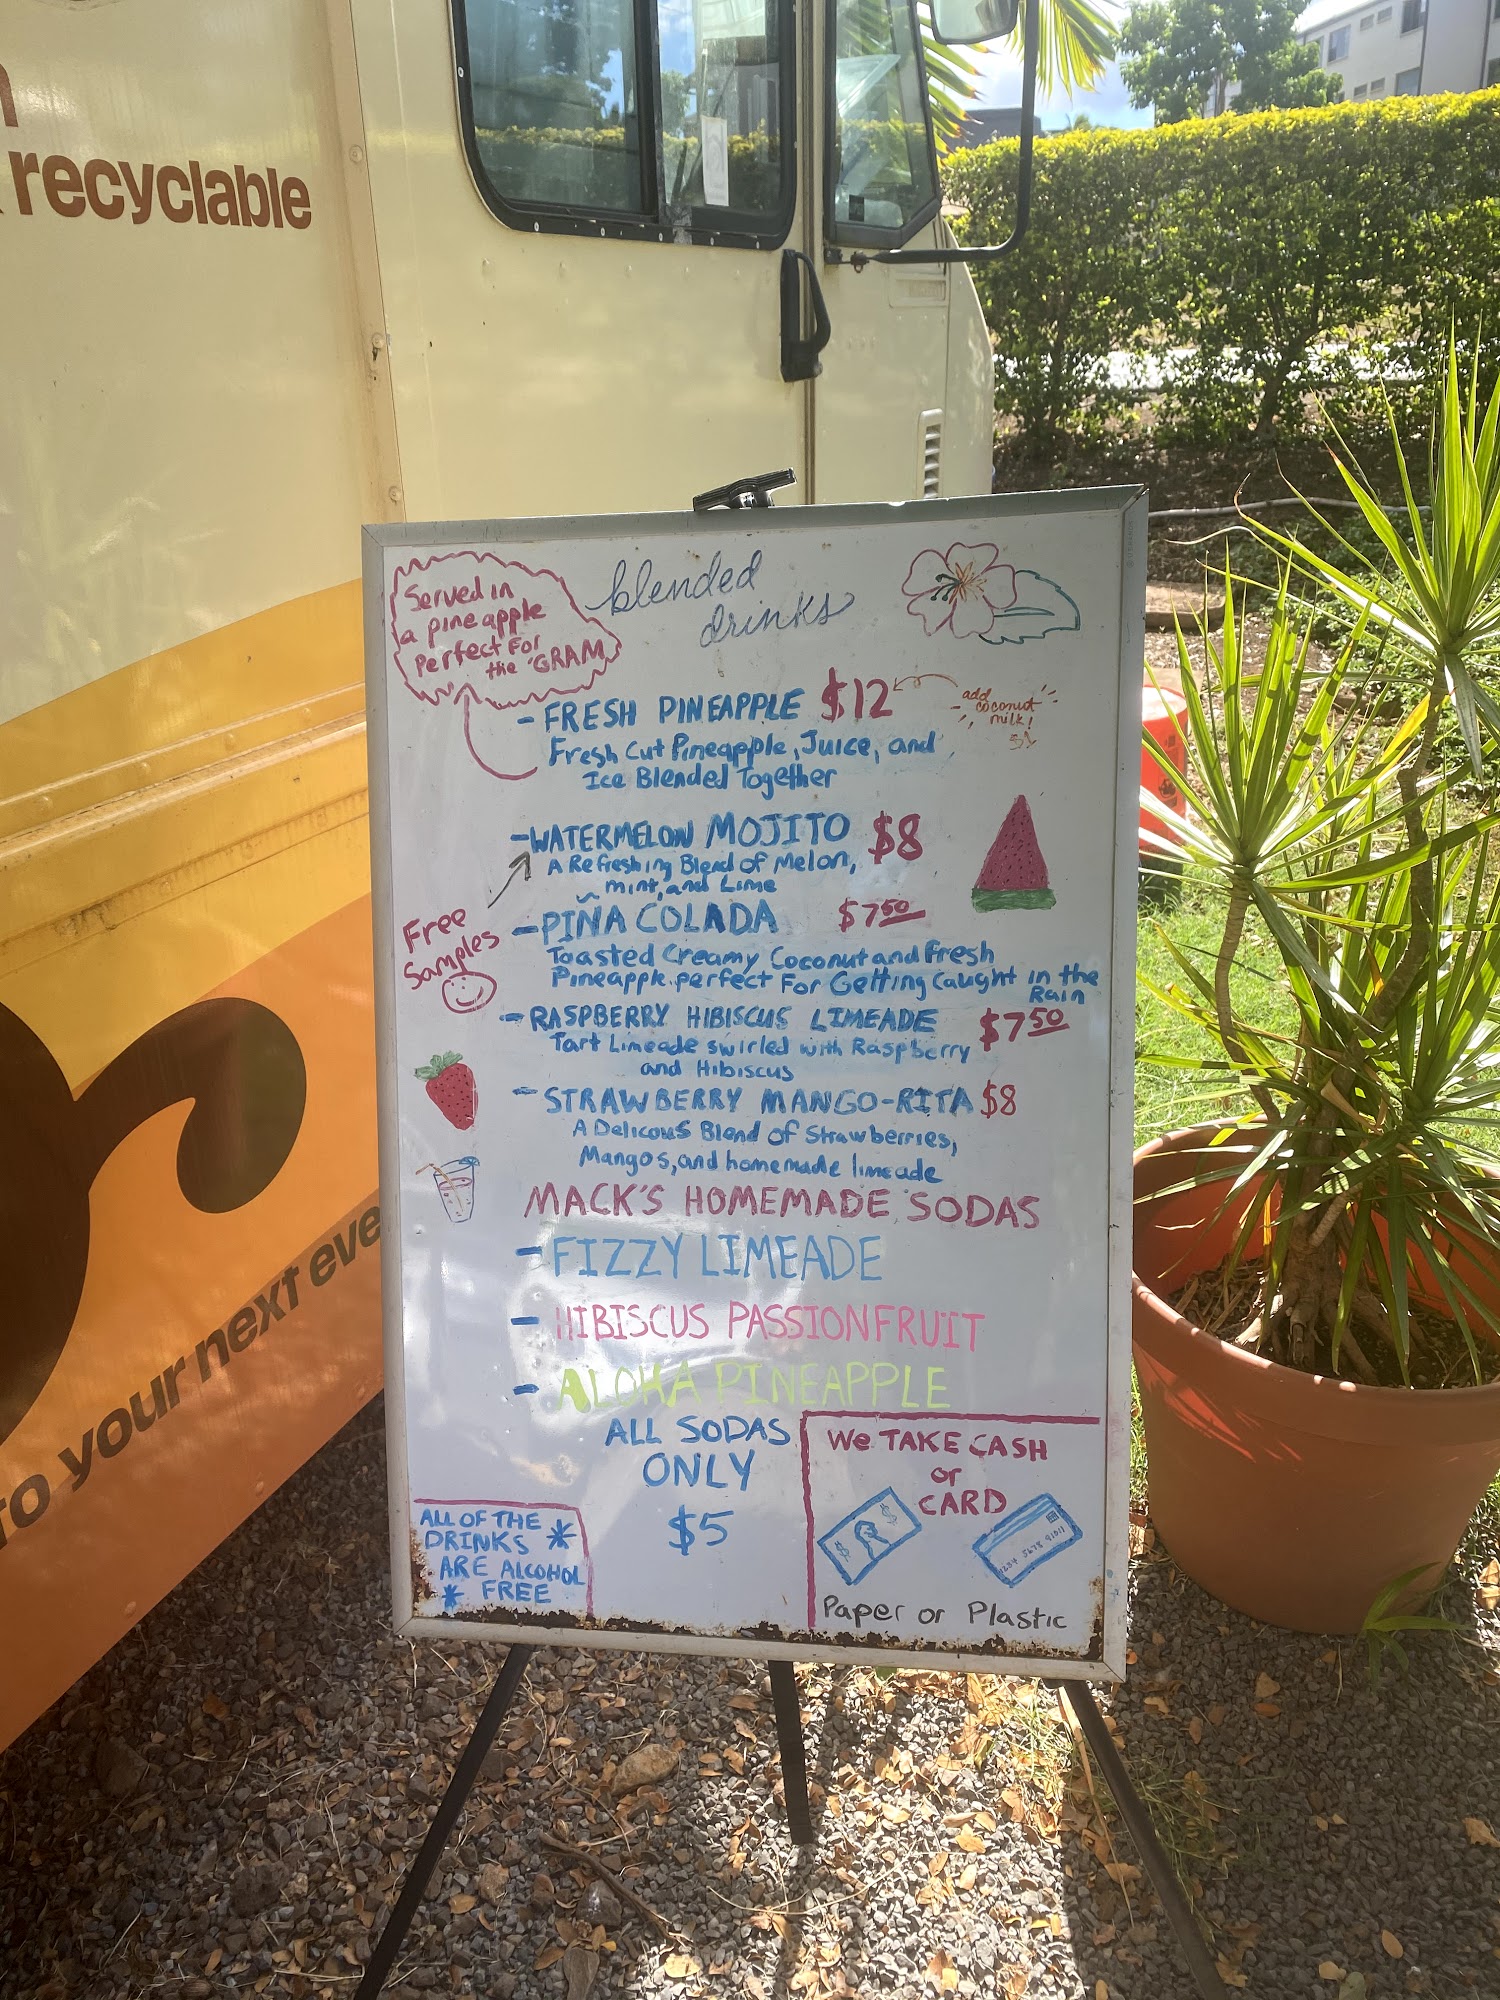 recyclable
to your next eve
blended
drinks
Served in
a pineapple
perfect For
the 'GRAM
- FRESH PINEAPPLE $12
add
coconut
milk!
Fresh Cut Pineapple, Juice, and
Ice Blended Together
- WATERMELON MOJITO $8
A Refreshing Blend of Melon,
mint, and Lime
Free
Samples
- PINA COLADA $7.50
Toasted Creamy Coconut and Fresh
Pineapple. perfect For Getting Caught in the
Rain
- RASPBERRY HIBISCUS LIMEADE $7.50
Tart Limeade swirled with Raspberry
and Hibiscus
- STRAWBERRY MANGO-RITA $8
A Delicous Blend of Strawberries,
Mangos, and homemade limeade
MACK'S HOMEMADE SODAS
- FIZZY LIMEADE
- HIBISCUS PASSIONFRUIT
- ALOHA PINEAPPLE
ALL SODAS
ONLY
$5
ALL OF THE
DRINKS *
ARE ALCOHOL
* FREE
We TAKE CASH
or
CARD
1234 5678 91011
Paper or Plastic